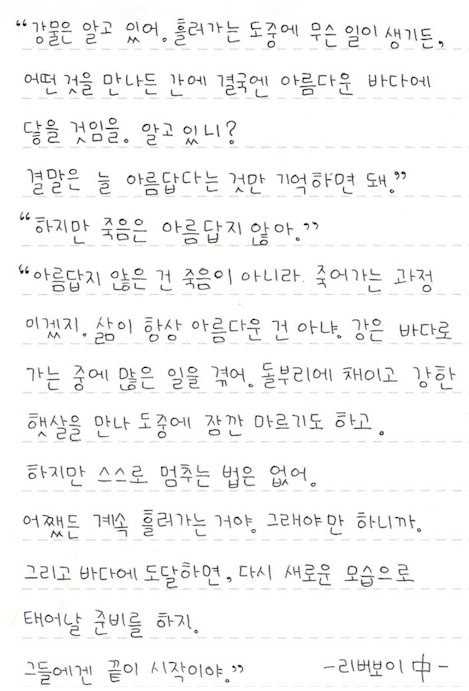 “강물은 알고 있어. 흘러가는 도중에 무슨 일이 생기든,
어떤 것을 만나든 간에 결국엔 아름다운 바다에
닿을 것임을. 알고 있니?
결말은 늘 아름답다는 것만 기억하면 돼.”
“하지만 죽음은 아름답지 않아.”
“아름답지 않은 건 죽음이 아니라. 죽어가는 과정
이겠지. 삶이 항상 아름다운 건 아냐. 강은 바다로
가는 중에 많은 일을 겪어. 돌부리에 채이고 강한
햇살을 만나 도중에 잠깐 마르기도 하고.
하지만 스스로 멈추는 법은 없어.
어쨌든 계속 흘러가는 거야. 그래야만 하니까.
그리고 바다에 도달하면, 다시 새로운 모습으로
태어날 준비를 하지.
그들에겐 끝이 시작이야.” -리버보이 中-